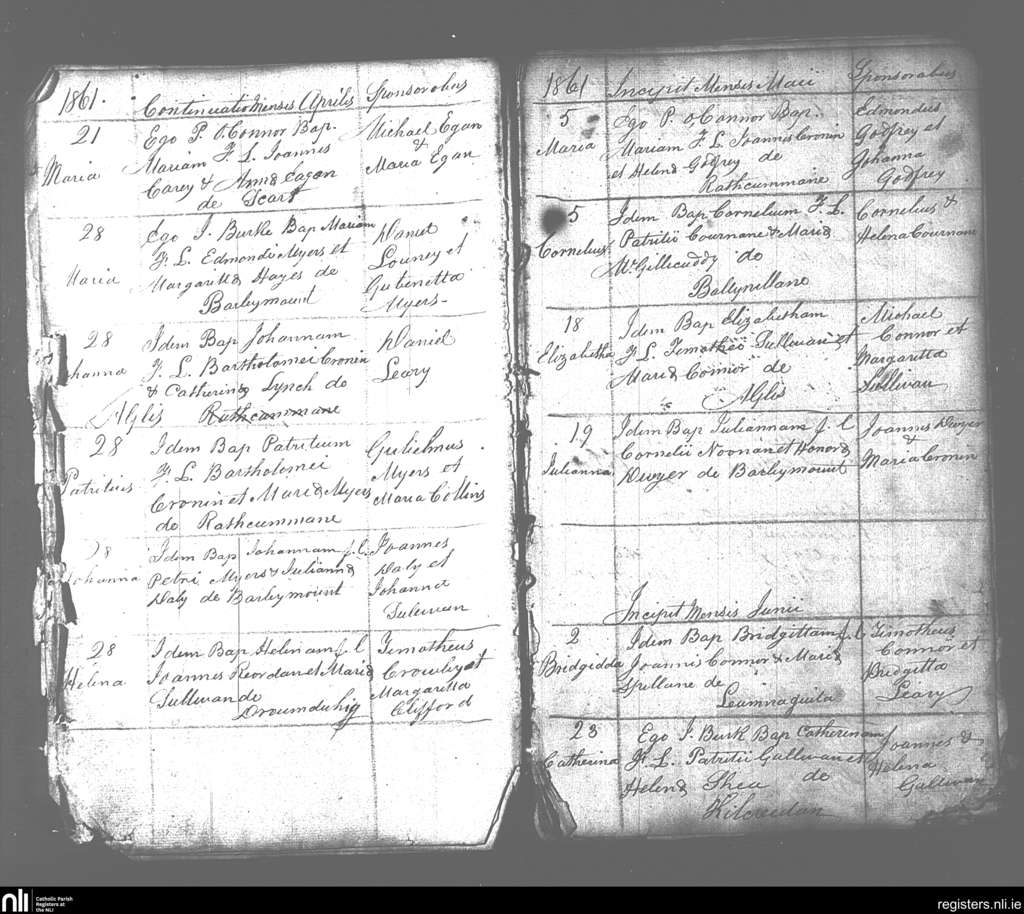 1861. Continuatio Mensis Aprilis Sponsorabus
21 Ego P. O'Connor Bap. Michael Egan
Maria Mariam F. L. Joannis & Maria Egan
Carey & Anna Eagan
de Scart
28 Ego J. Burke Bap Mariam
F. L. Edmondi Myers et Louney et
Maria Margaritta Hayes de
Barleymount Myers-
28 Idem Bap Johannam Daniel
hanna F. L. Bartholomei Cronin Leary
& Catherina Lynch de
Aglis Rathcummane
28 Idem Bap Patritium Gulielmus
Patritius F. L. Bartholomei Myers et
Cronin et Maria Myers Maria Collins
de Rathcummane
28 Idem Bap Johannam f. l. Joannes
Johanna Petri Myers & Julianna Daly et
Daly de Barleymount Johanna
Sulivan
28 Idem Bap Helinam f. l Timotheus
Helina Joannis Reordan et Maria Crowley et
Sullivan de Margaretta
Droumduhig Clifford
1861 Incipit Mensis Maii Sponsorabus
5 Ego P. O'Connor Bap. Edmondus
Maria Mariam F. L. Joannis Cronin Godfrey et
et Helena Godfrey de Johanna
Rathcummane Godfrey
5 Idem Bap Cornelium F. L. Cornelius &
Cornelius Patritii Cournane & Maria Helena Cournane
McGillicuddy de
Ballynillane
18 Idem Bap Elizabetham Michael
Elizabetha F. L. Timothei Sullivan et Connor et
Maria Connor de Margaretta
Aglis Sullivan
19 Idem Bap Juliannam f. l Joannes Dwyer
Julianna Cornelii Noonan et Honora & Maria Cronin
Dwyer de Barleymount
Incipit Mensis Junii
2 Idem Bap Bridgittam f. l Timotheus
Bridgidda Joannis Connor & Maria Connor et
Spillane de Bridgitta
Leamnaguila Leary
23 Ego J. Burk Bap Catherinam Joannes &
Catherina F. L. Patritii Gallivan et Helena
Helena Shea de Gallivan
nli Catholic Parish
Registers at
the NLI
registers.nli.ie